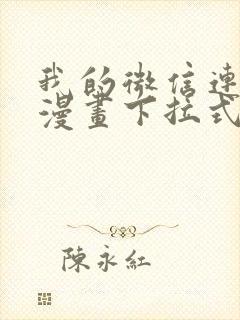 我的微信連
漫畫下拉式
陳永紅